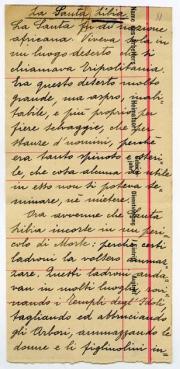 La Santa Silia
La Santa fu di nazione
africana. Viveva sola in
un luogo deserto che si
chiamava Tripolitania.
Era questo deserto molto
grande, ma aspro, inabi-
tabile, e più proprio per
fiere selvaggie, che per
stanze d'uomini, perchè
era tanto spinoso e steri-
le, che cosa alcuna di utile
in esso non si poteva se-
minare, nè mietere.
Ora avvenne che Santa
Silia incorse in un peri-
colo di Morte: perchè certi
ladroni la voltero ammaz-
zare. Questi ladroni anda-
van in molti luoghi, roi-
nando i Templi degl' Idoli
tagliando ed abbruciando
gli Arbori, ammazzando le
donne e li figliuolini in